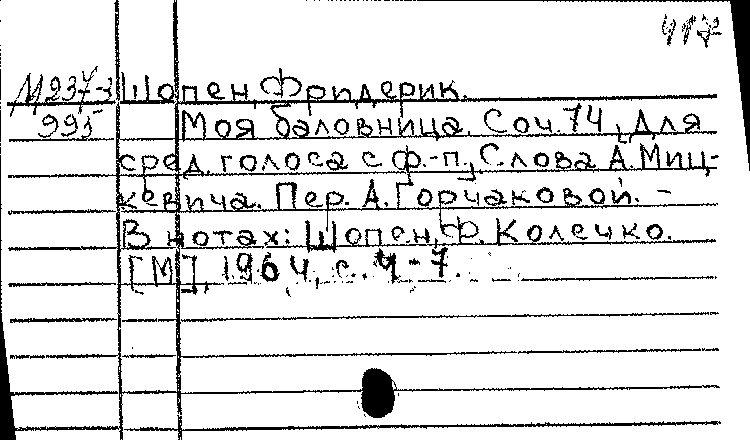 Шопен, Фридерик.
М237-3
995
Моя баловница. Соч. 74. [Для
сред. голоса с ф.-п.]. Слова А. Миц-
кевича. Пер. А. Горчаковой. –
В нотах: Шопен, Ф. Колечко.
[М], 1964, с. 4-7.